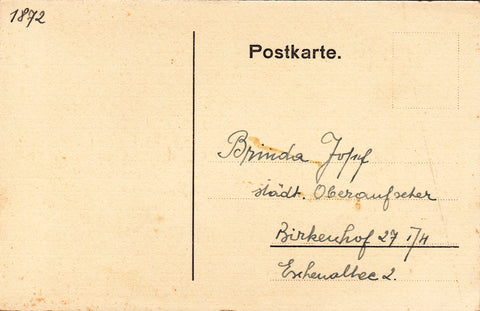 1872
Postkarte.
Brinda Josef
städt. Oberaufseher
Birkenhof 27 I/4
Eschenallee 2.